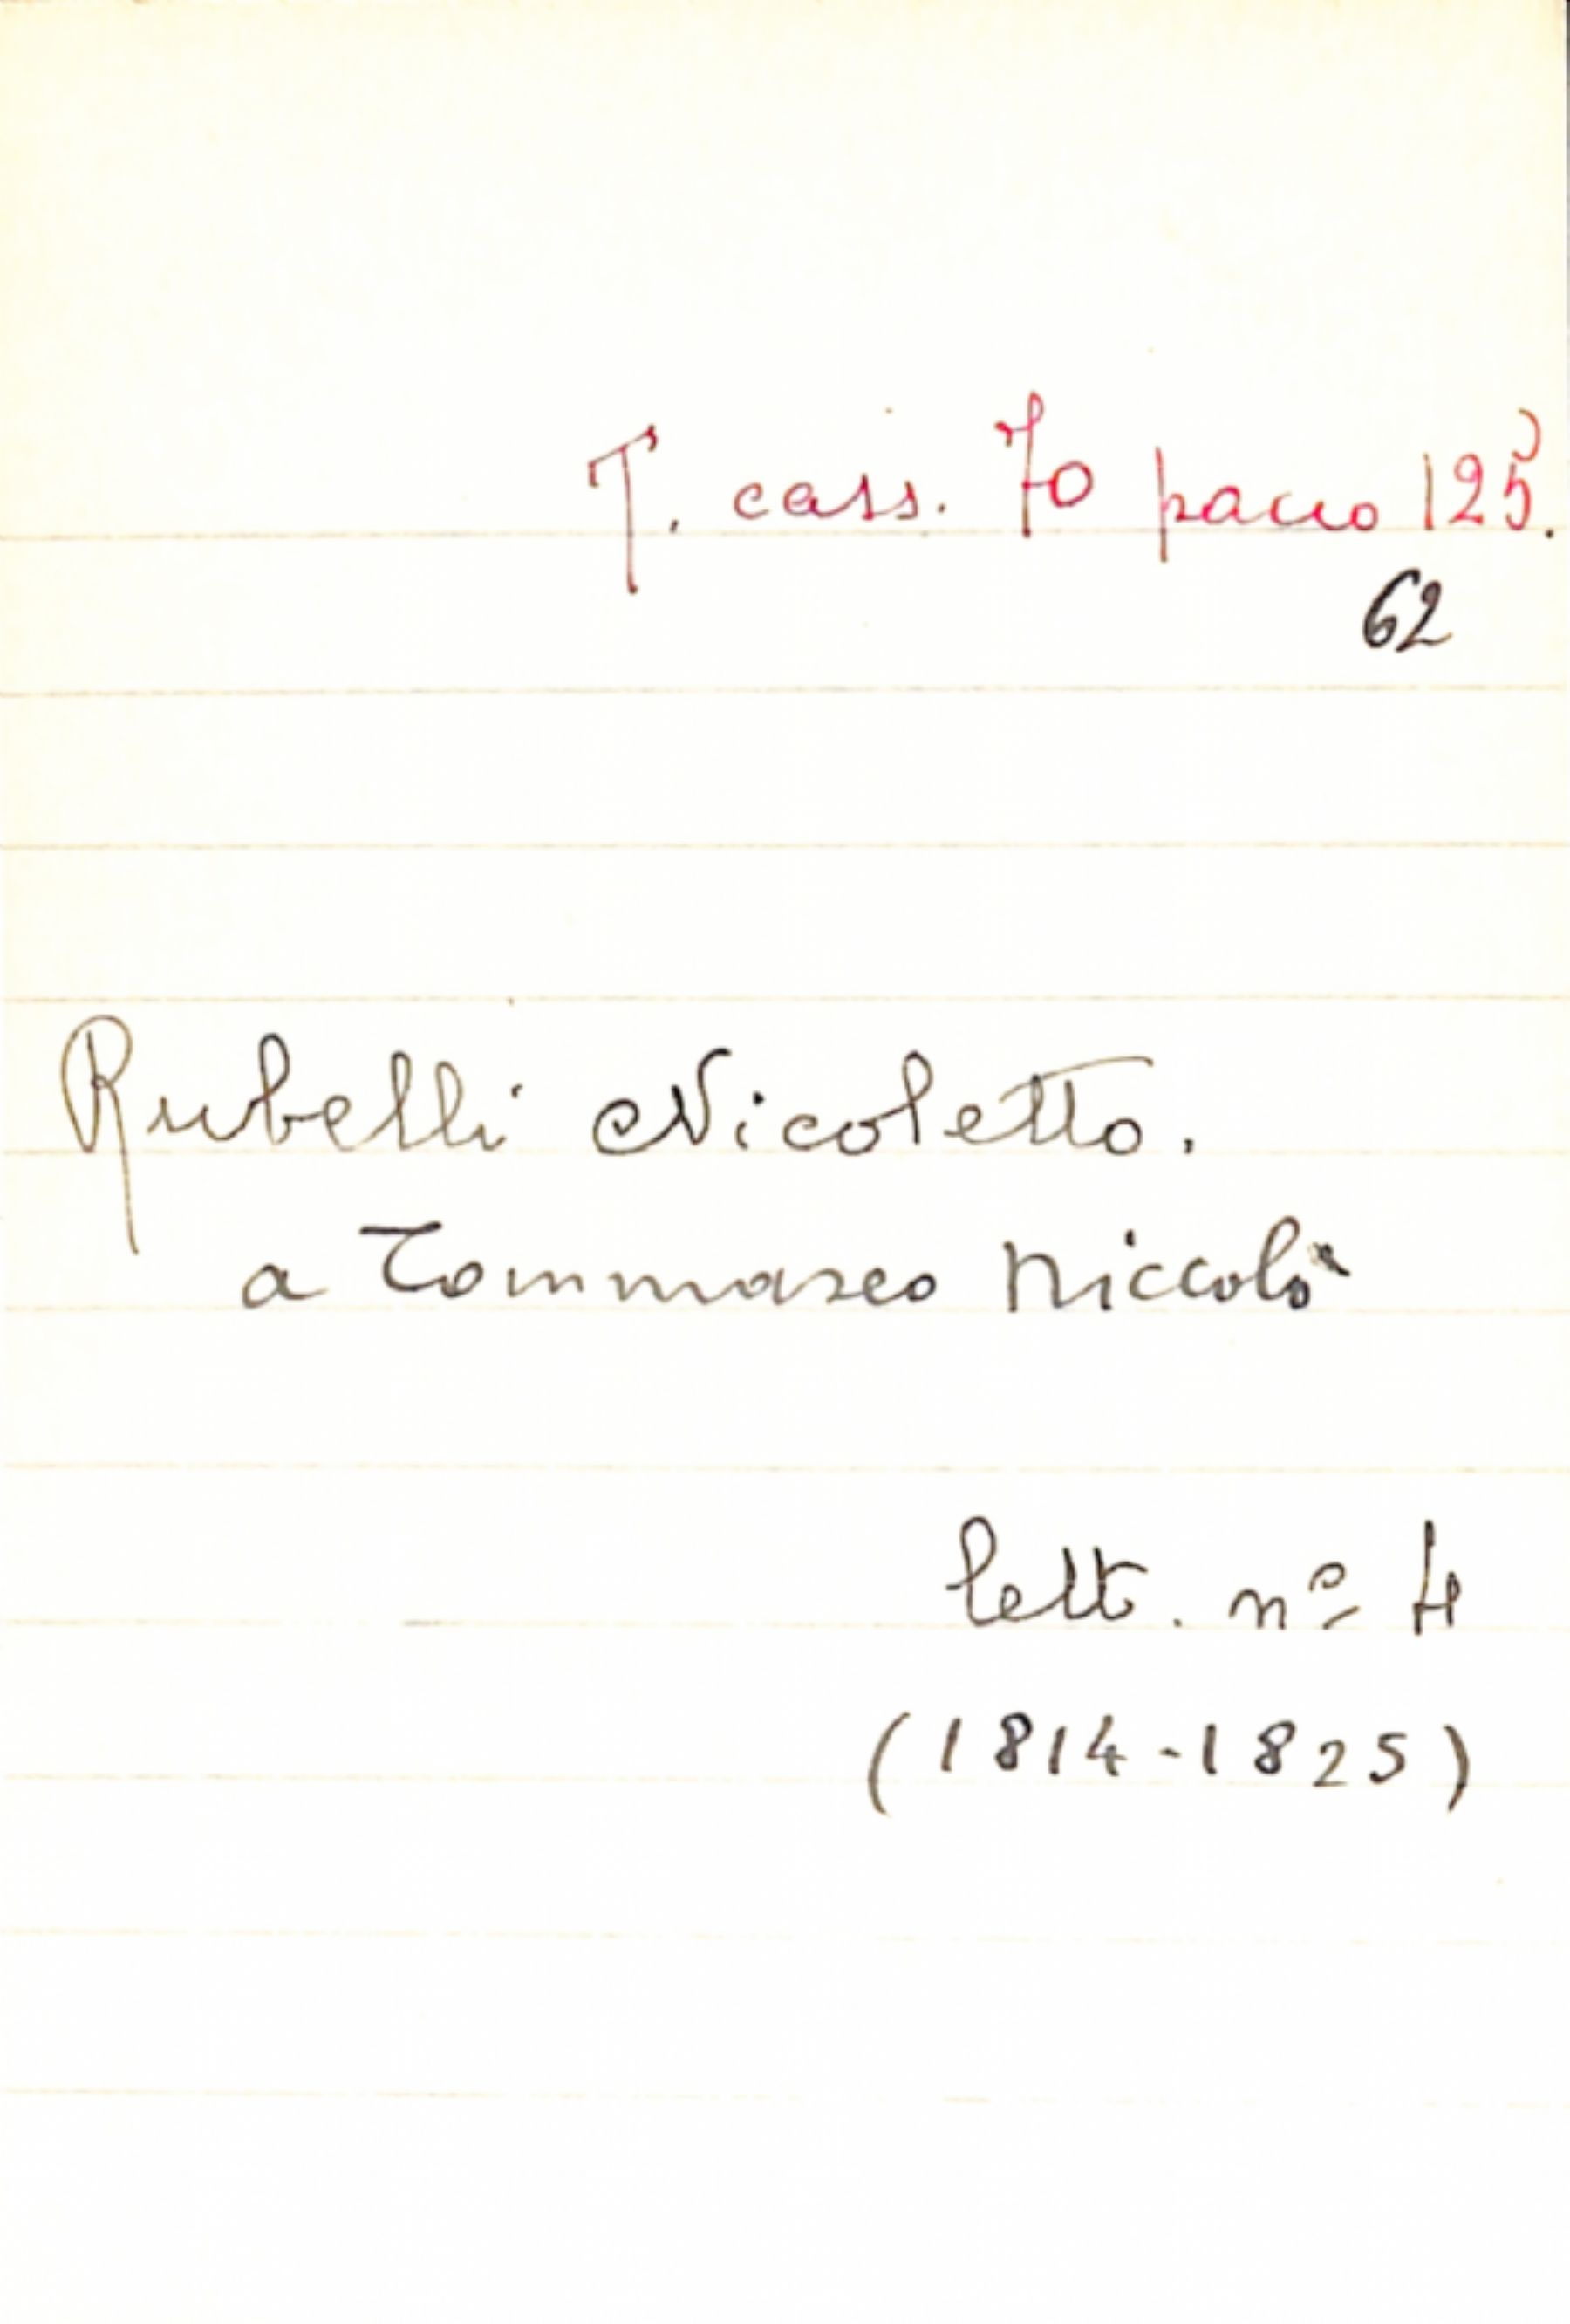 T. cass. 70 pacco 125.
62
Rubelli Nicoletto.
a Tommaseo Niccolò
lett. nº 4
(1814-1825)